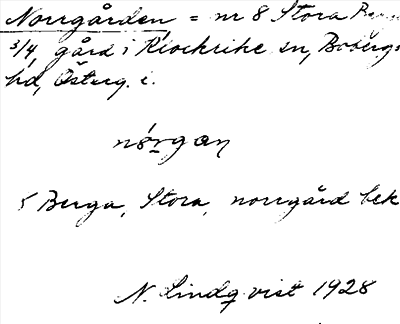 Norrgården = nr 8 Stora
3/4, gård i Klockrike sn, Bobergs
hd, Österg. l.
nórgan
5 Berga, Stora, norrgård bek
N. Lindqvist 1928